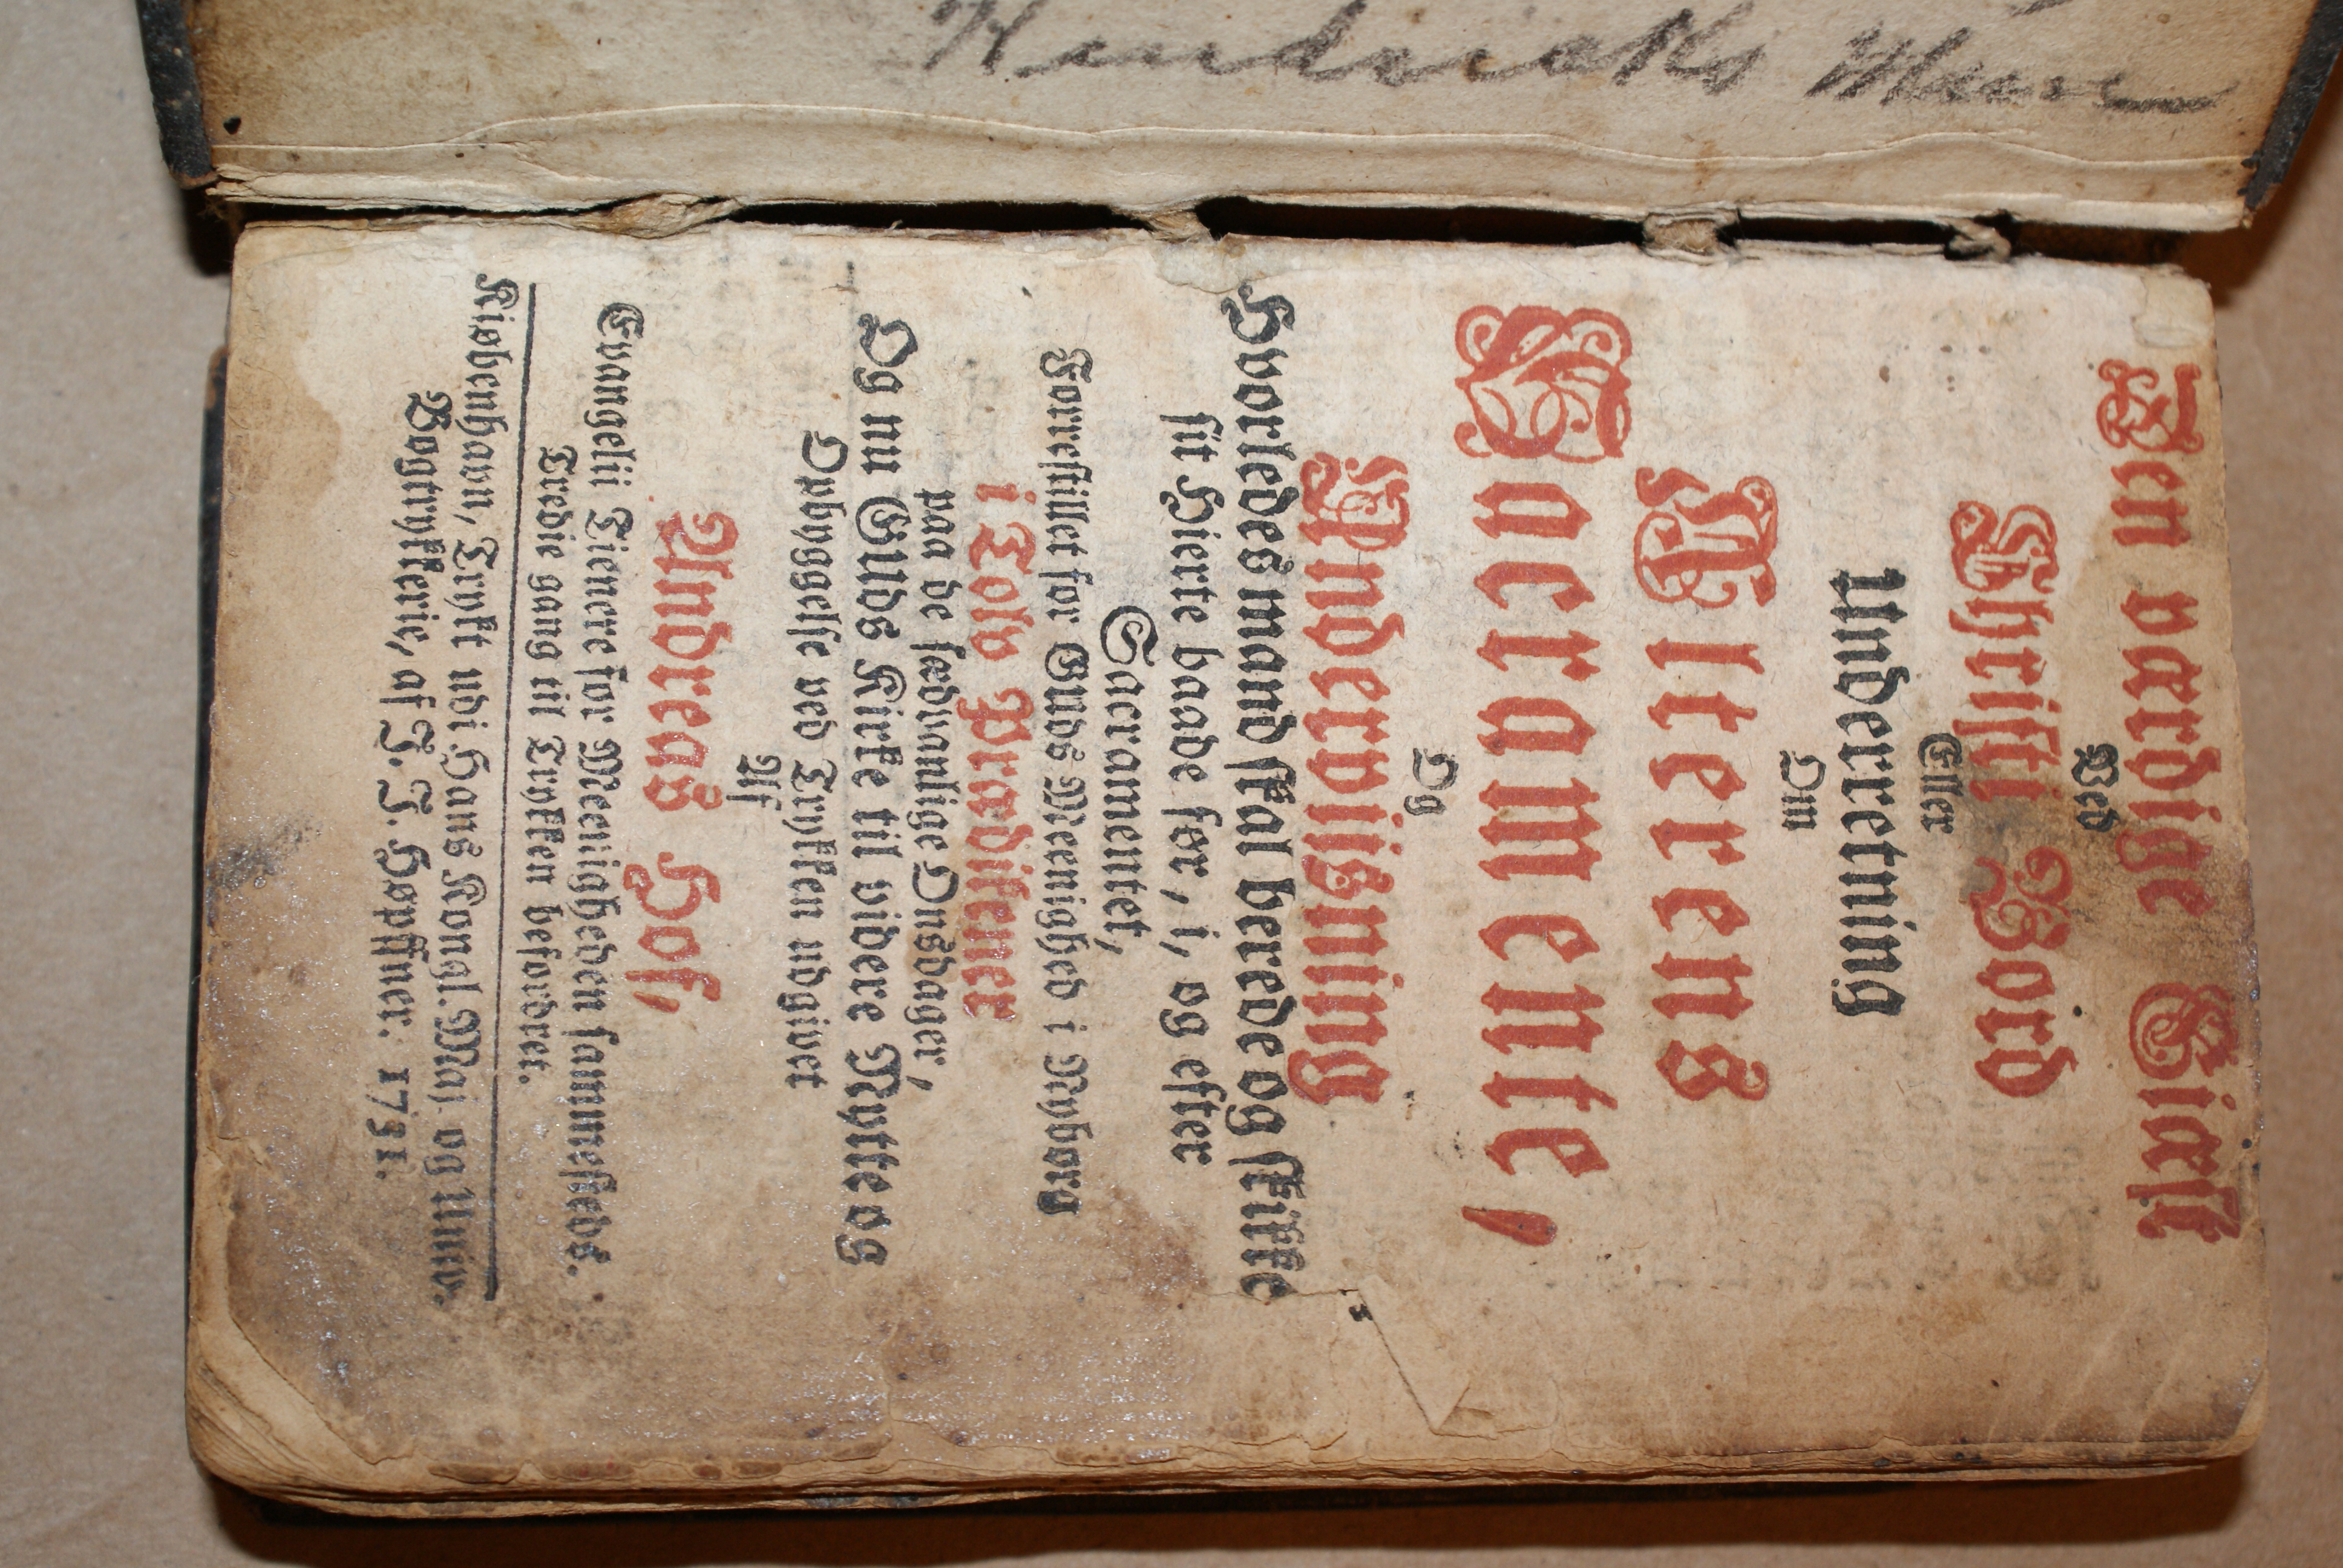 Hendricks Minn
Den værdige Giæst
Ved
Christi Bord
Eller
Underretning
Om
Alterens
Sacramente,
Og
Anderviisning
Hvorledes mand skal berede og skikke
sit Hierte baade før, i, og efter
Sacramentet,
Forrestillet for Guds Meenighed i Nyborg
i Tolv Prædikener
paa de sædvanlige Onsdager,
Og nu Guds Kirke til videre Nytte og
Opbyggelse ved Trykken udgivet
Af
Andreas Hof,
Evangelii Tienere for Meenigheden sammesteds.
Tredie gang til Trykken befordret.
Kiøbenhavn, Trykt udi Hans Kongl. Maj. og Univ.
Bogtrykkerie, af J. J. Høpffner. 1731.